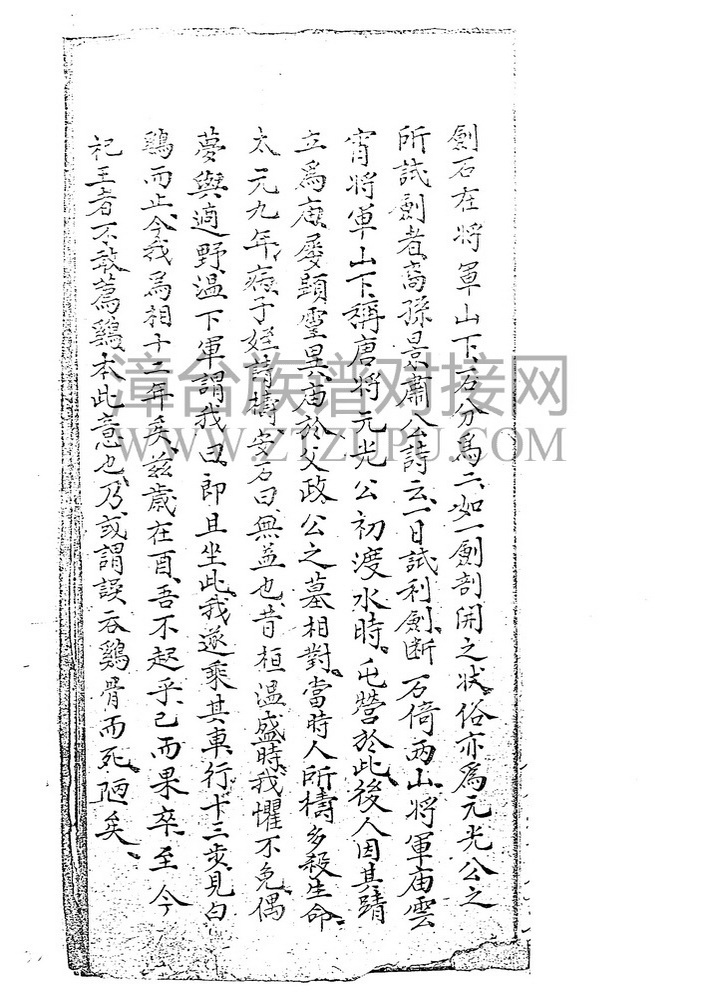 劍石在將軍山下石分為二如一劍剖開之狀俗亦為元光公之
所試劍者裔孫景肅公詩云一日試利劍断石倚两山將軍庙雲
霄將軍山下稱唐將元光公初渡水時屯營於此後人因其蹟
立爲庙屡顕灵異庙於父政公之墓相對當時人所禱多殺生命
太元九年病子姪請禱安石曰無益也昔桓温盛時我懼不免偶
夢與適野温下軍謂我曰即且坐此我遂乘其車行十三步見白
鷄而止今我爲相十二年矣兹歲在酉吾不起乎已而果卒至今
祀王者不敢薦鷄本此意也乃或謂誤吞鷄骨而死陋矣
漳台族谱对接网
WWW.ZTZUPU.COM